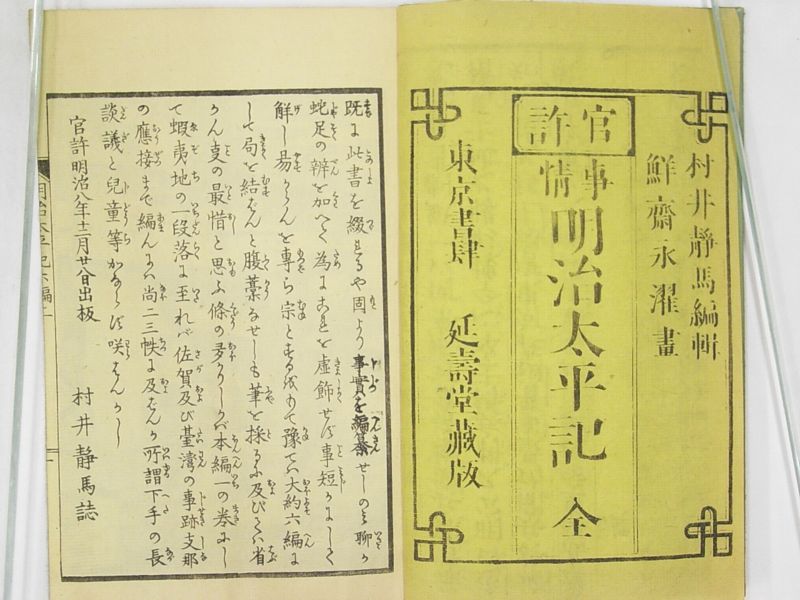 村井靜馬編輯
鮮齋永濯畫
官許
事情
明治太平記 全
東京書肆 延壽堂藏版
既に此書を綴るや固より事實を編纂せしのミ聊か
蛇足の辨を加へて為に虚飾せず事短かにして
解し易からんを専ら宗とするをもて豫てハ大約六編に
して局を結ばんと腹藁なせしも筆を採るに及びてハ省
かん叓の最惜と思ふ條の多かりしかバ本編一の巻にし
て蝦夷地の一段落に至れバ佐賀及び臺灣の事跡支那
の應接まで編んにハ尚二三帙に及ばんか所謂下手の長
談議と兒童等かならず咲はんかし
官許明治八年十二月廿八日出板
村井静馬誌
明治太平記